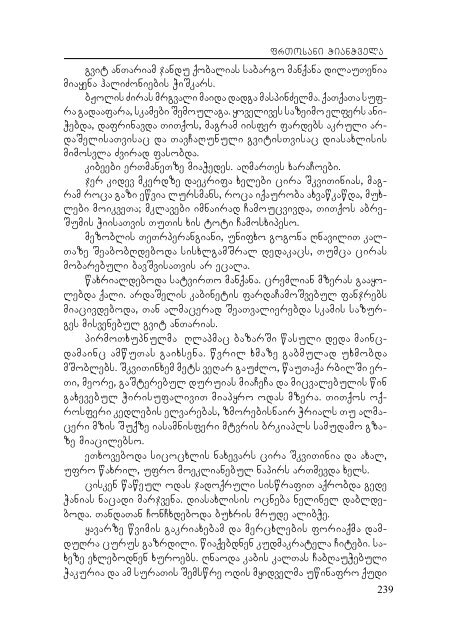 ფრთოსანი ჭიანჭველა
გვიტ ანთარიამ ჯანდუ ქობალიას საბარგო მანქანა დილაუთენია
მიაყენა ჰალიძონიების ჭიშკარს.
ბჟოლის ძირას მრგვალი მაიდა დადგა მასპინძელმა. ქათქათა სუფ-
რა გადააფარა, სკამები შემოულაგა. ყოველივეს საზეიმო ელფერს ანი-
ჭებდა, დაფრინავდა თითქოს, მაგრამ იისფერ ფარდებს აკრული არ-
დაშელისათვისაც და თავჩაღუნული გვიტისთვისაც დიასახლისის
მიმოსვლა ძვირად ფასობდა.
კიბეები ერთმანეთზე მიაჭედეს. აღმართეს ხარაჩოები.
ჯერ კიდევ მკერდზე დაეკრიფა ხელები ცირა შკვითინიას, მაგ-
რამ როცა გაზი ეწვია ლურსმანს, როცა იქაურობა ახვაწკაწდა, მუხ-
ლები მოიკვეთა; მკლავები იმნაირად ჩამოუცვივდა, თითქოს აბრე-
შუმის ჭიისათვის თუთის ხის ტოტი ჩამოსხიპესო.
მეზობლის თეთრპერანგიანი, უნიფხო გოგონა ღნავილით კალ-
თაზე შეაბობღდებოდა სისხლგამშრალ დედაკაცს, თუმცა ცირას
მობარებული ბავშვისათვის არ ეცალა.
წახრიალდებოდა სატვირთო მანქანა. ცრემლიან მზერას გააყო-
ლებდა ქალი. არდაშელის კაბინეტის ფარდაჩამოშვებულ ფანჯრებს
მიაცივდებოდა, თან ალმაცერად შეათვალიერებდა სკამის საზურ-
გეს მისვენებულ გვიტ ანთარიას.
პირმოთხუპნულმა ღლაპმაც ბაზარში წასული დედა მაინც-
დამაინც ამწუთას გაიხსენა. წვრილ ხმაზე გაბმულად უხმობდა
მშობლებს. შკვითინხემ მეტს ვეღარ გაუძლო, წაუთაქა რბილში ერ-
თი, მეორე, გაშტერებულ დურუიას მიაჩეჩა და მიცვალებულის წინ
გახევებულ ჭირისუფალივით მიაპყრო ოდას მზერა. თითქოს ოქ-
როსფერი კედლების ელვარებას, ზმორებისნაირ ჭრიალს თუ ალმა-
ცერი მზის შუქზე იასამნისფერი მტვრის ბრკიაპლს სამუდამო გზა-
ზე მიაცილებსო.
ეთხოვებოდა სიცოცხლის ნახევარს ცირა შკვითინია და ახალ,
უფრო წახრილ, უფრო მოეკლიანებულ ნაპირს ართმევდა ხელს.
ცისკენ წაწეულ ოდას ჯადოქრული სისწრაფით აქრობდა გედე
ჭანიას ნაცადი მარჯვენა. დიასახლისის ოცნება ნელინელ დაბლდე-
ბოდა. თანდათან ჩონჩხდებოდა ბუხრის მრუდე ალიბჭე.
ყავარზე წვიმის გაკრიახებამ და მერცხლების ფორიაქმა დამ-
დუღრა ცურუს გაზრდილი. წიაქებდნენ კუდმაკრატელა ჩიტები. სა-
ხეზე ეხლებოდნენ ხუროებს. ღნაოდა კაბის კალთას ჩაბღაუჭებული
ჭაკურია და ამ სურათის შემსწრე ოდის მყიდველმა უწინაფრო ქუდი
239